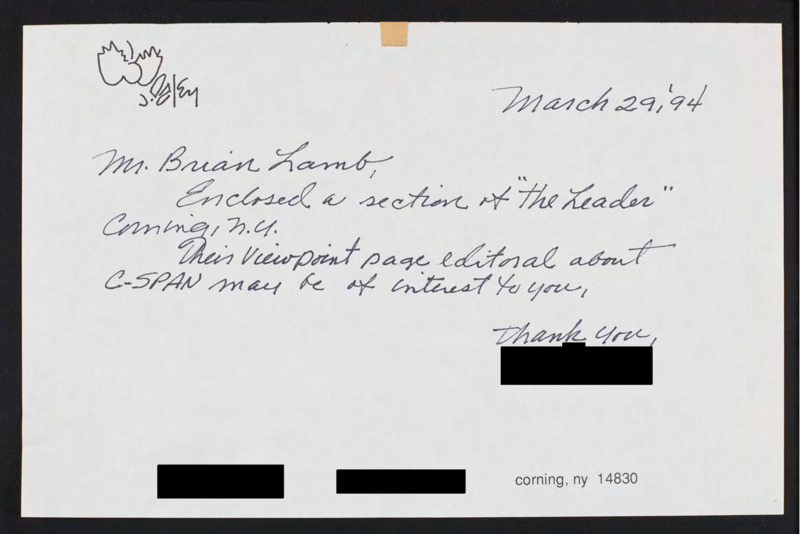 March 29, '94
Mr. Brian Lamb,
Enclosed a section of "The Leader"
Corning, N.Y.
Their Viewpoint page editoral about
C-SPAN may be of interest to you,
Thank you,
corning, ny 14830